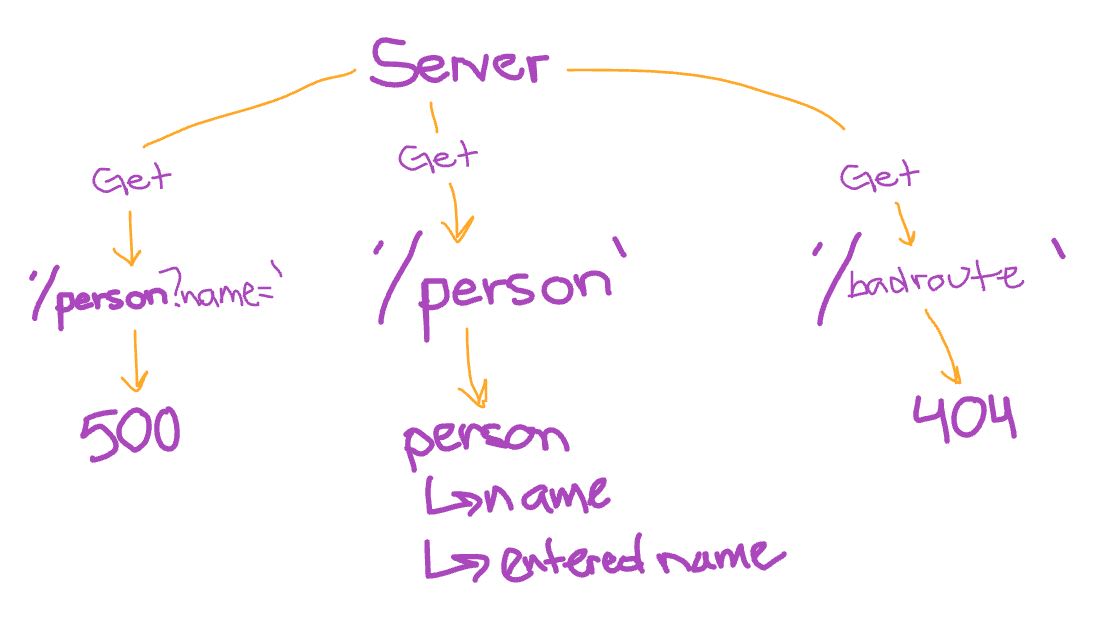 Server
Get
'/person?name=`
500
Get
'/person`
person
name
entered name
Get
'/badroute `
404